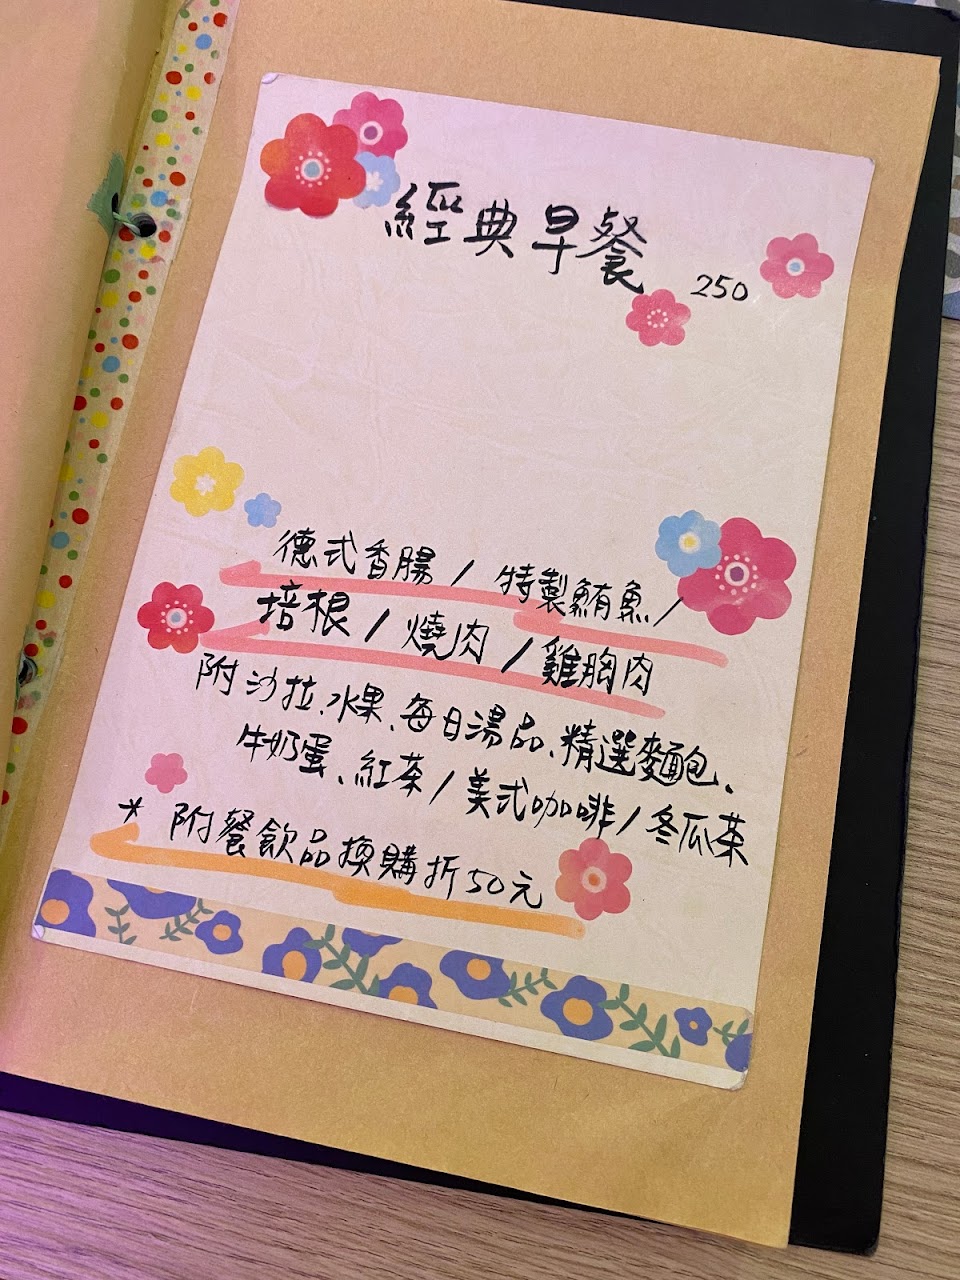 經典早餐 250
德式香腸 / 特製鮪魚 /
培根 / 燒肉 / 雞胸肉
附沙拉、水果、每日湯品、精選麵包、
牛奶蛋、紅茶 / 美式咖啡 / 冬瓜茶
* 附餐飲品換購折50元